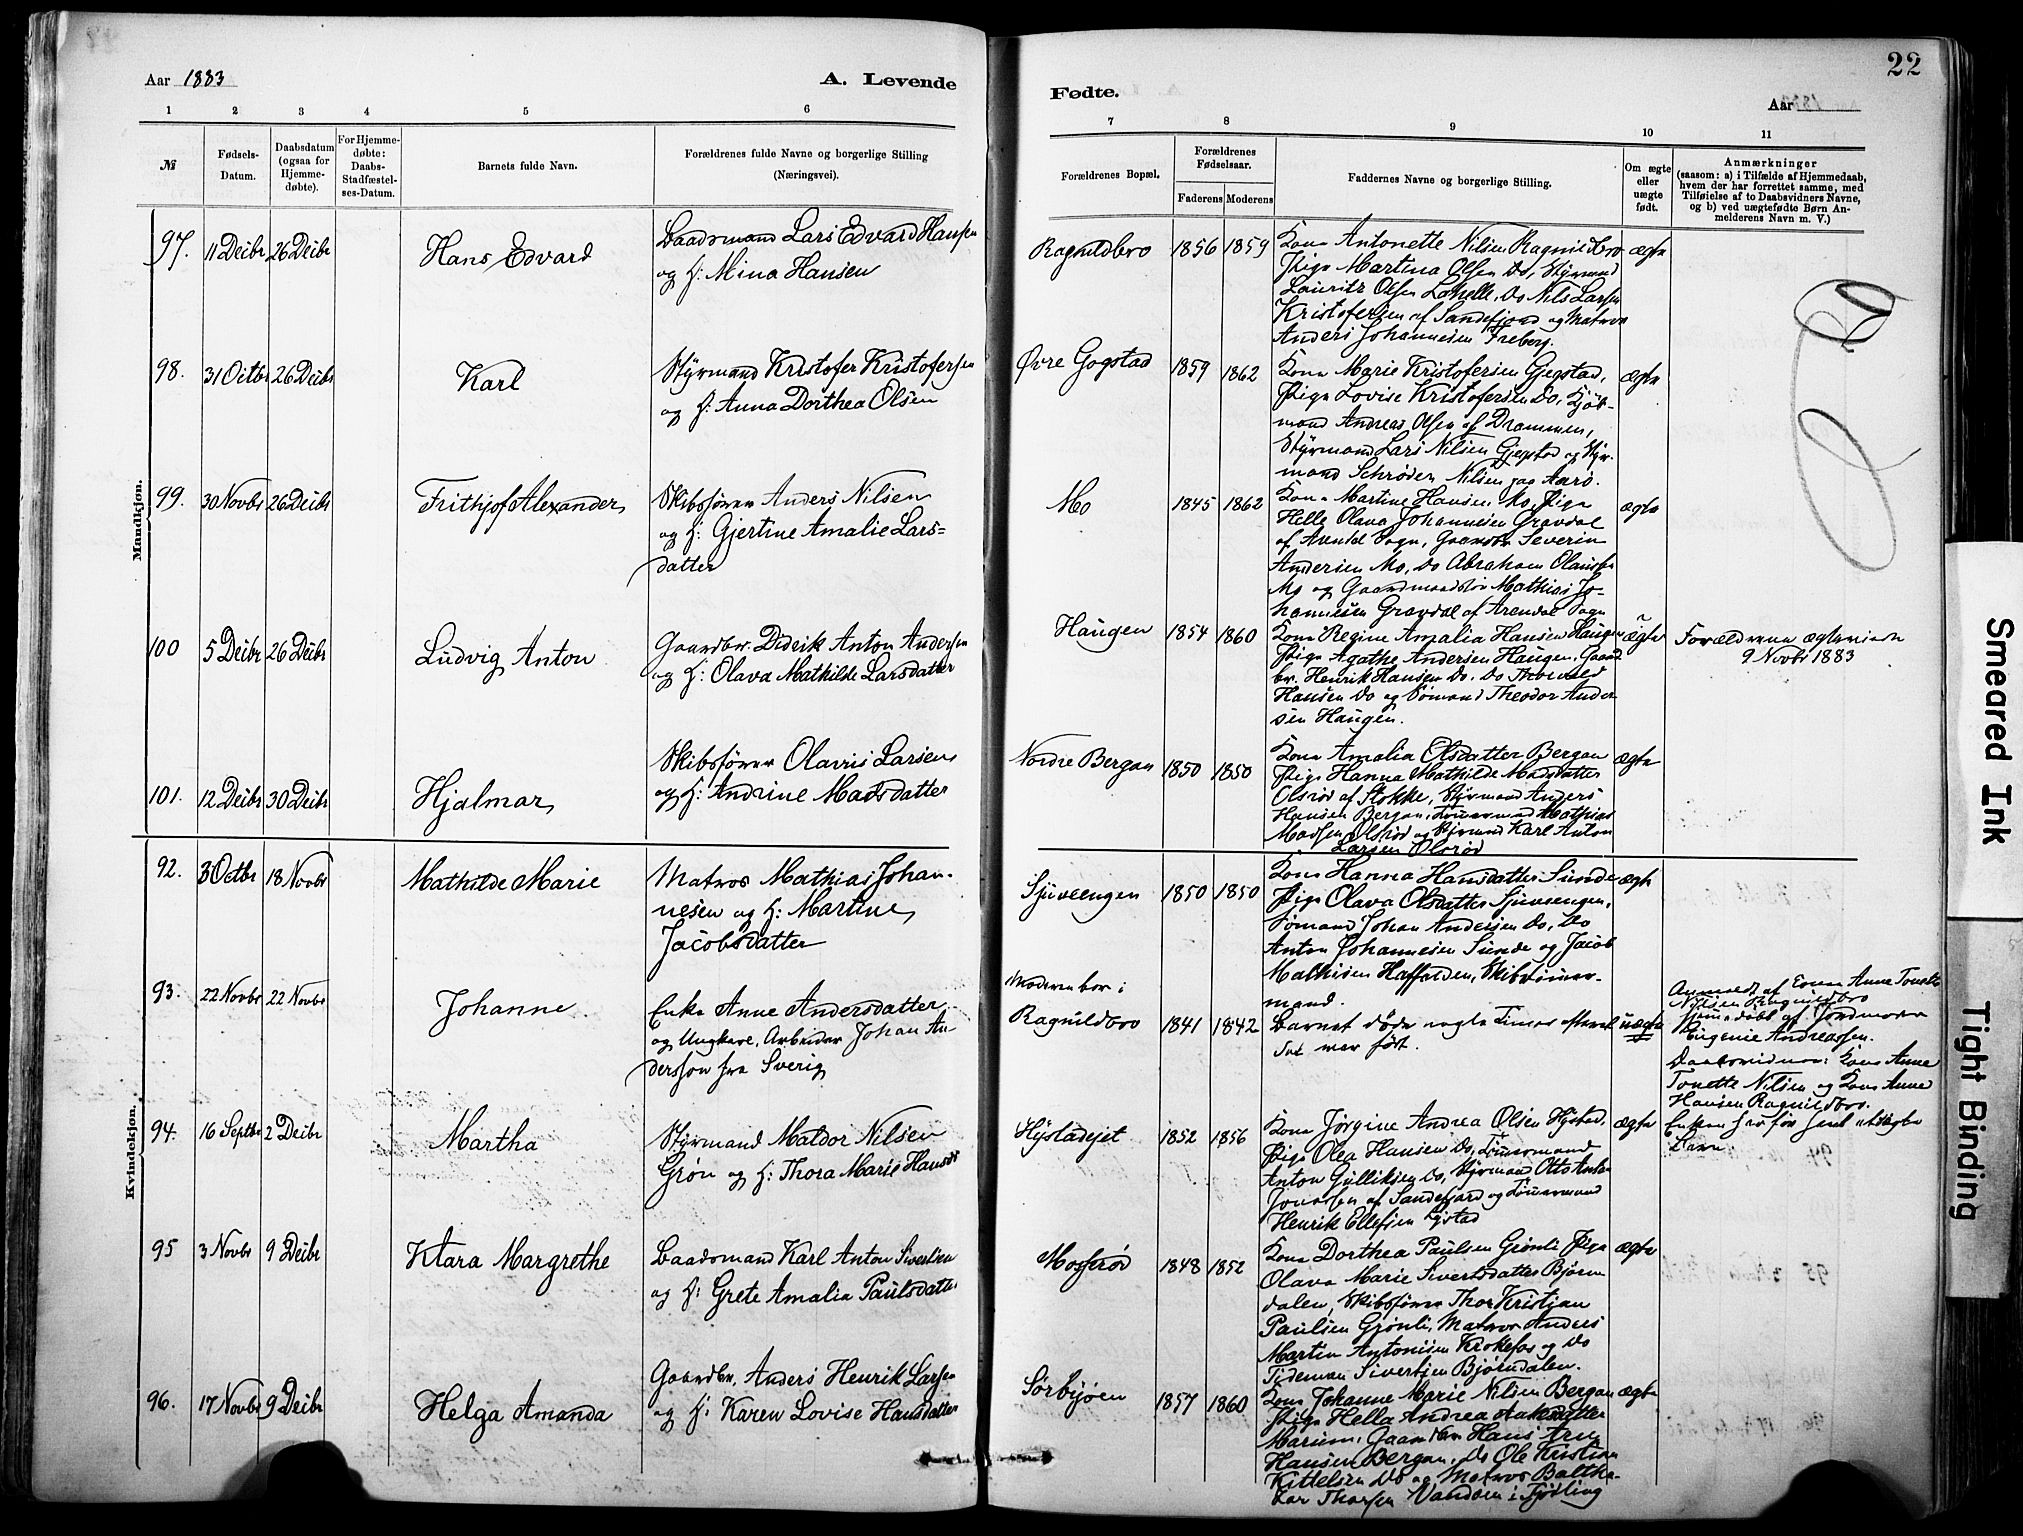 22
Aar 1883
A. Levende
Fødte.
Aar
1 2 3 4 5 6
7 8 9 10 11
№
Fødsels-
Datum.
Daabsdatum
(ogsaa for
Hjemme-
døbte).
For Hjemme-
døbte:
Daabs-
Stadfæstel-
ses-Datum.
Barnets fulde Navn.
Forældrenes fulde Navne og borgerlige Stilling
(Næringsvei).
Forældrenes Bopæl.
Forældrenes
Fødselsaar.
Faderens Moderens
Faddernes Navne og borgerlige Stilling.
Om ægte
eller
uægte
født.
Anmærkninger
(saasom: a) i Tilfælde af Hjemmedaab,
hvem der har forrettet samme, med
Tilføielse af to Daabsvidners Navne,
og b) ved uægtefødte Børn An-
melderens Navn m. V.)
Mandkjøn.
97. 11 Decbr 26 Decbr Hans Edvard
Baadsmand Lars Edvard Hansen
og H: Mina Hansen
Ragnildbro 1856 1859
Kone Antonette Nilsen Ragnildbro
Pige Martina Olsen Do, Styrmand
Lauritz Olsen Lahelle, Do Nils Larsen
Kristofersen af Sandefjord og Matros
Anders Johannesen Freberg.
ægte
98. 31 Octbr 26 Decbr Karl
Styrmand Kristofer Kristofersen
og H: Anna Dorthea Olsen
Øvre Gogstad 1859 1862
Kone Marie Kristofersen Gjogstad,
Pige Lovise Kristofersen Do, Kjøb-
mand Andreas Olsen af Drammen,
Styrmand Lars Nilsen Gjogstad og Styr-
mand Schrøder Nilsen paa Aarø.
ægte
99. 30 Novbr 26 Decbr Frithjof Alexander
Skibsfører Anders Nilsen
og H: Gjertine Amalie Lars=
datter
Mo 1845 1862
Kone Martine Hansen Mo, Pige
Helle Olava Johannesen Gravdal
af Arendal Sogn, Gaardbr Severin
Andersen Mo, Do Abraham Olaussen
Mo og Gaardmandssøn Mathias Jo-
hannesen Gravdal af Arendal Sogn
ægte
100 5 Decbr 26 Decbr Ludvig Anton
Gaardbr. Didrik Anton Andersen
og H: Olava Mathilde Larsdatter
Haugen 1854 1860
Kone Regine Amalia Hansen Haugen
Pige Agathe Andersen Haugen, Gaard
br. Henrik Hansen Do, Do Thorvald
Hansen Do og Sømand Theodor Ander
sen Haugen.
ægte
Forældrene ægteviede
9 Novbr 1883
101. 12 Decbr 30 Decbr Hjalmar
Skibsfører Olavus Larsen
og H: Andrine Madsdatter
Nordre Bergan 1850 1850
Kone Amalia Olsdatter Bergan
Pige Hanna Mathilde Madsdatter
Olsrød af Stokke, Styrmand Anders
Hansen Bergan, Tømmermand Mathias
Madsen Olsrød og Styrmand Karl Anton
Larsen Olsrød
ægte
Kvindekjøn.
92. 3 Octbr 18 Novbr Mathilde Marie
Matros Mathias Johan-
nesen og H: Martine
Jacobsdatter
Sjuveengen 1850 1850
Kone Hanna Hansdatter Sunde
Pige Olava Olsdatter Sjuveengen,
Sømand Johan Andersen Do, Do
Anton Johannesen Sunde og Jacob
Mathisen Haffalden, Skibstømmer-
mand.
ægte
93. 22 Novbr 22 Novbr Johanne
Enke Anne Andersdatter
og Ungkarl, Arbeider Johan An
dersson fra Sverig
Moderen bor i
Ragnildbro 1841 1842
Barnet døde nogle Timer efterat
det var født.
uægte
Anmeldt af Kone Anne Tonette
Nilsen Ragnildbro
Hjemmedøbt af Jordmoder
Eugenie Andreassen.
Daabsvidner: Kone Anne
Tonette Nilsen og Kone Anne
Hansen Ragnildbro.
Enken har før havt uægte
Barn
94. 16 Septbr 2 Decbr Martha
Styrmand Maldor Nilsen
Grøn og H: Thora Marie Hansdr
Hystadejet 1852 1856
Kone Jørgine Andrea Olsen Hystad,
Pige Olea Hansen Do, Tømmermand
Anton Gulliksen Do, Styrmand Otto Anton
Jonassen af Sandefjord og Tømmermand
Henrik Ellefsen Hystad
ægte
95 3 Novbr 9 Decbr Klara Margrethe
Baadsmand Karl Anton Sivertsen
og H: Grete Amalia Paulsdatter
Mosserød 1848 1852
Kone Dorthea Paulsen Grønli Pige
Olava Marie Sivertsdatter Bjørn
dalen, Skibsfører Thor Kristian
Paulsen Grønli, Matros Anders
Martin Antonisen Krokefos og Do
Tideman Sivertsen Bjørndalen.
ægte
96. 17 Novbr 9 Decbr Helga Amanda
Gaardbr. Anders Henrik Larsen
og H: Karen Lovise Hansdatter
Sørbyøen 1857 1860
Kone Johanne Marie Nilsen Bergan
Pige Hella Andrea Aakesdatter
Marum, Gaardbr Hans Arn
Hansen Bergan, Do Ole Kristian
Kittelsen Do og Matros Baltha-
sar Thorsen Vandsen i Tjølling
ægte
Smeared Ink
Tight Binding